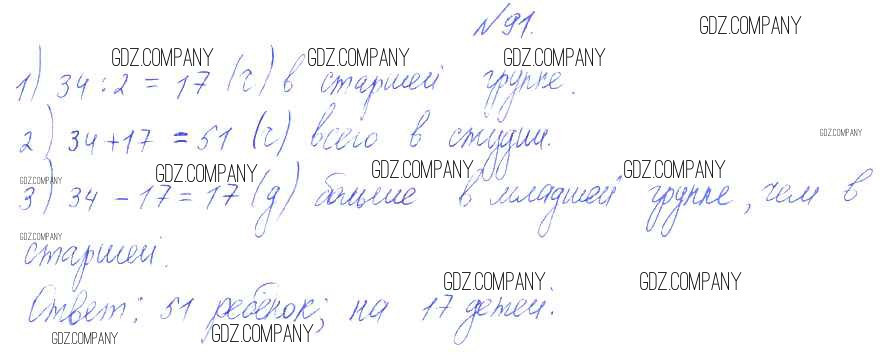 №91.
GDZ.COMPANY
GDZ.COMPANY GDZ.COMPANY GDZ.COMPANY
1) 34 : 2 = 17 (ч) в старшей группе.
2) 34 + 17 = 51 (ч) всего в студии.
GDZ.COMPANY
GDZ.COMPANY GDZ.COMPANY GDZ.COMPANY GDZ.COMPANY
3) 34 - 17 = 17 (д) больше в младшей группе, чем в
GDZ.COMPANY
старшей.
GDZ.COMPANY GDZ.COMPANY
Ответ: 51 ребёнок; на 17 детей.
GDZ.COMPANY GDZ.COMPANY